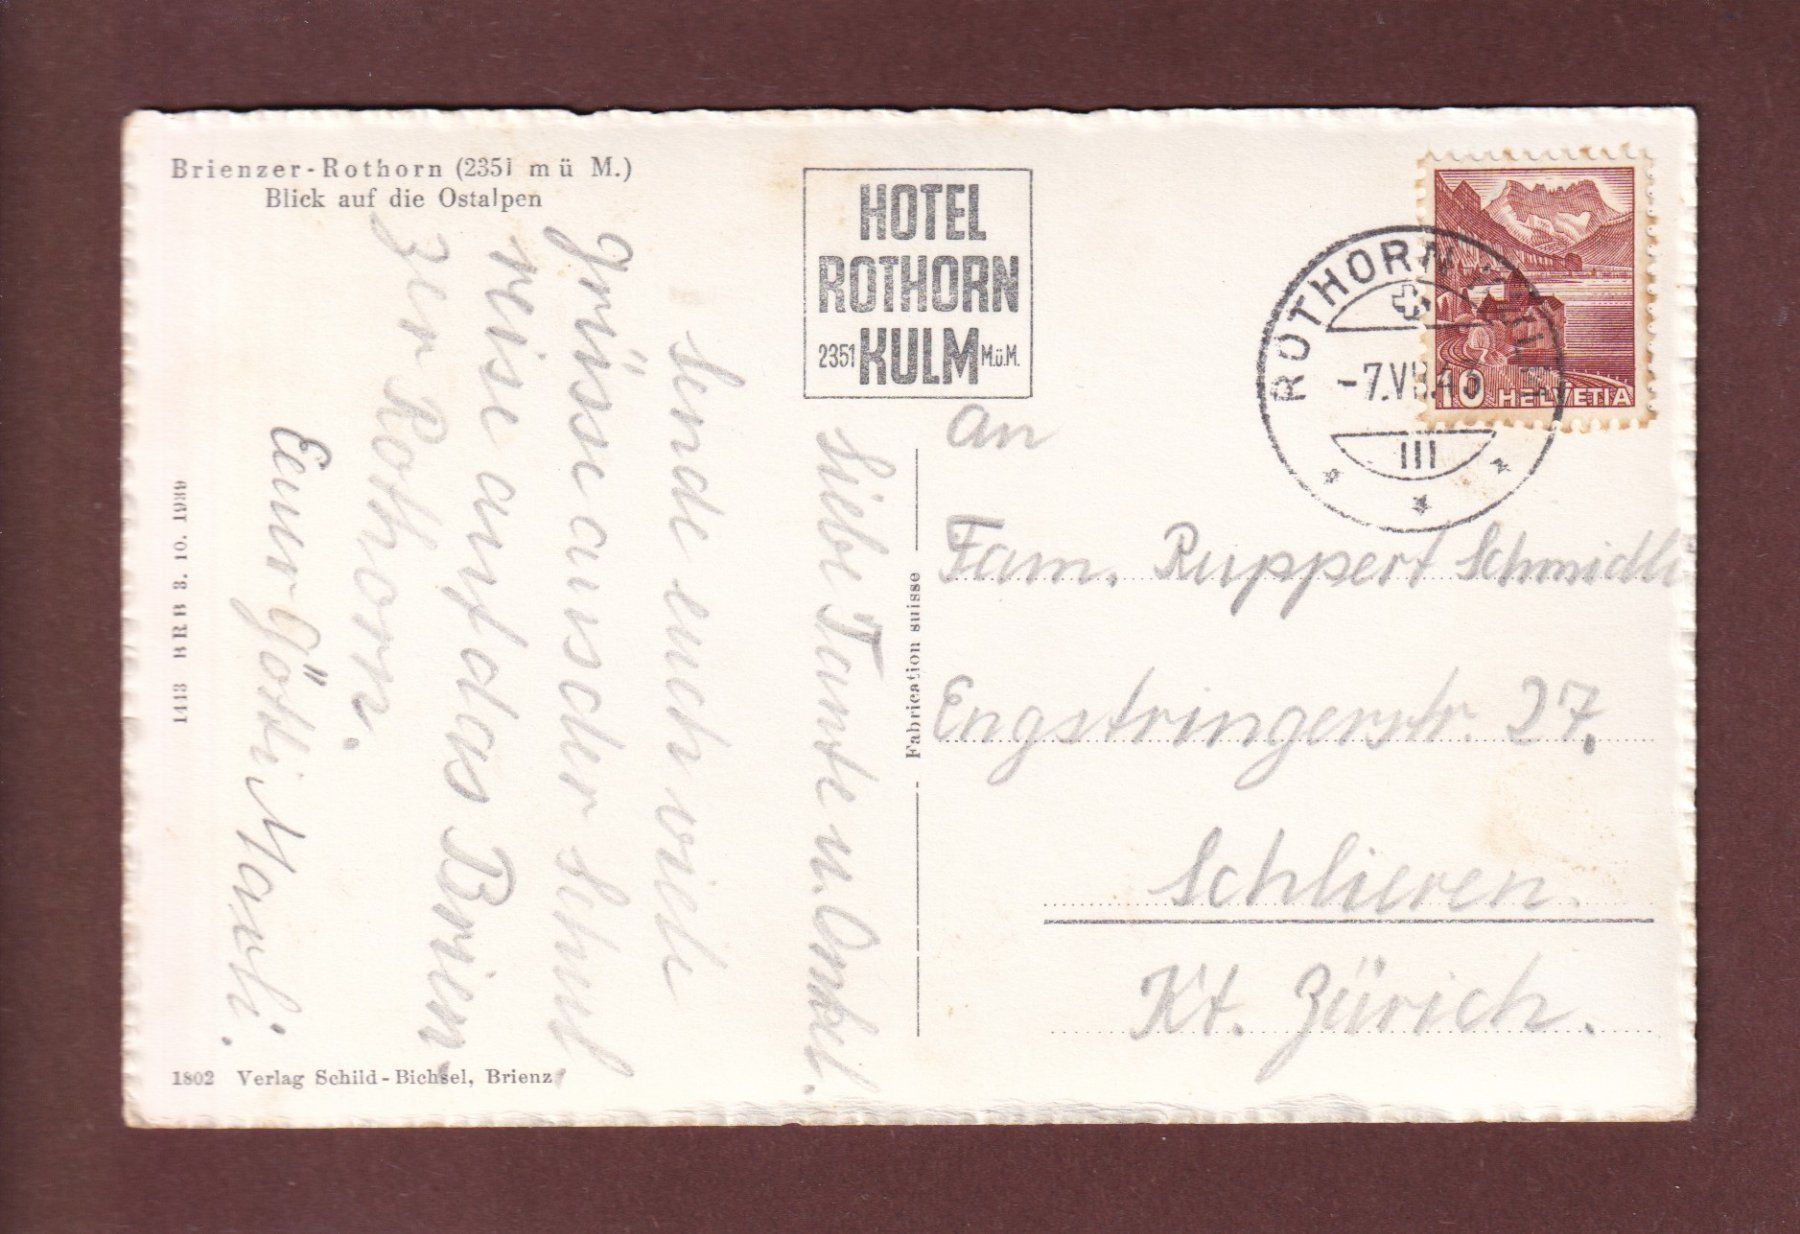 Brienzer-Rothorn (2351 m ü M.)
Blick auf die Ostalpen
HOTEL
ROTHORN
2351 KULM M.ü.M.
ROTHORN KULM
-7.VII.43
III
10 HELVETIA
Liebe Tante u. Onkel.
Sende euch viele
Grüsse aus der Schul
reise auf das Brien
zer Rothorn.
Euer Götti Maxli.
An
Fam. Ruppert Schmidli
Engstringerstr. 27.
Schlieren.
Kt. Zürich.
Fabrication suisse
1443 BRB 3. 10. 1939
1802 Verlag Schild-Bichsel, Brienz